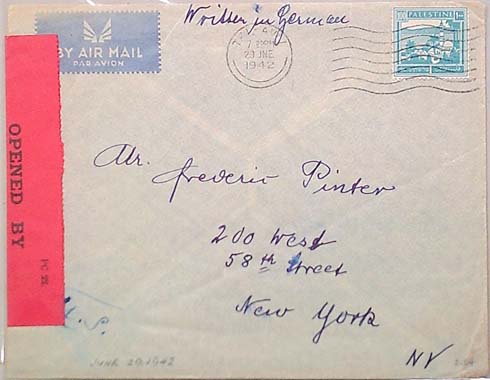 Written in German
BY AIR MAIL
PAR AVION
PALESTINE
100
7
29 JNE
1942
OPENED BY
P.C. 22.
Mr. Frederic Pinter
200 West
58th Street
New York
NY
JUNE 29, 1942